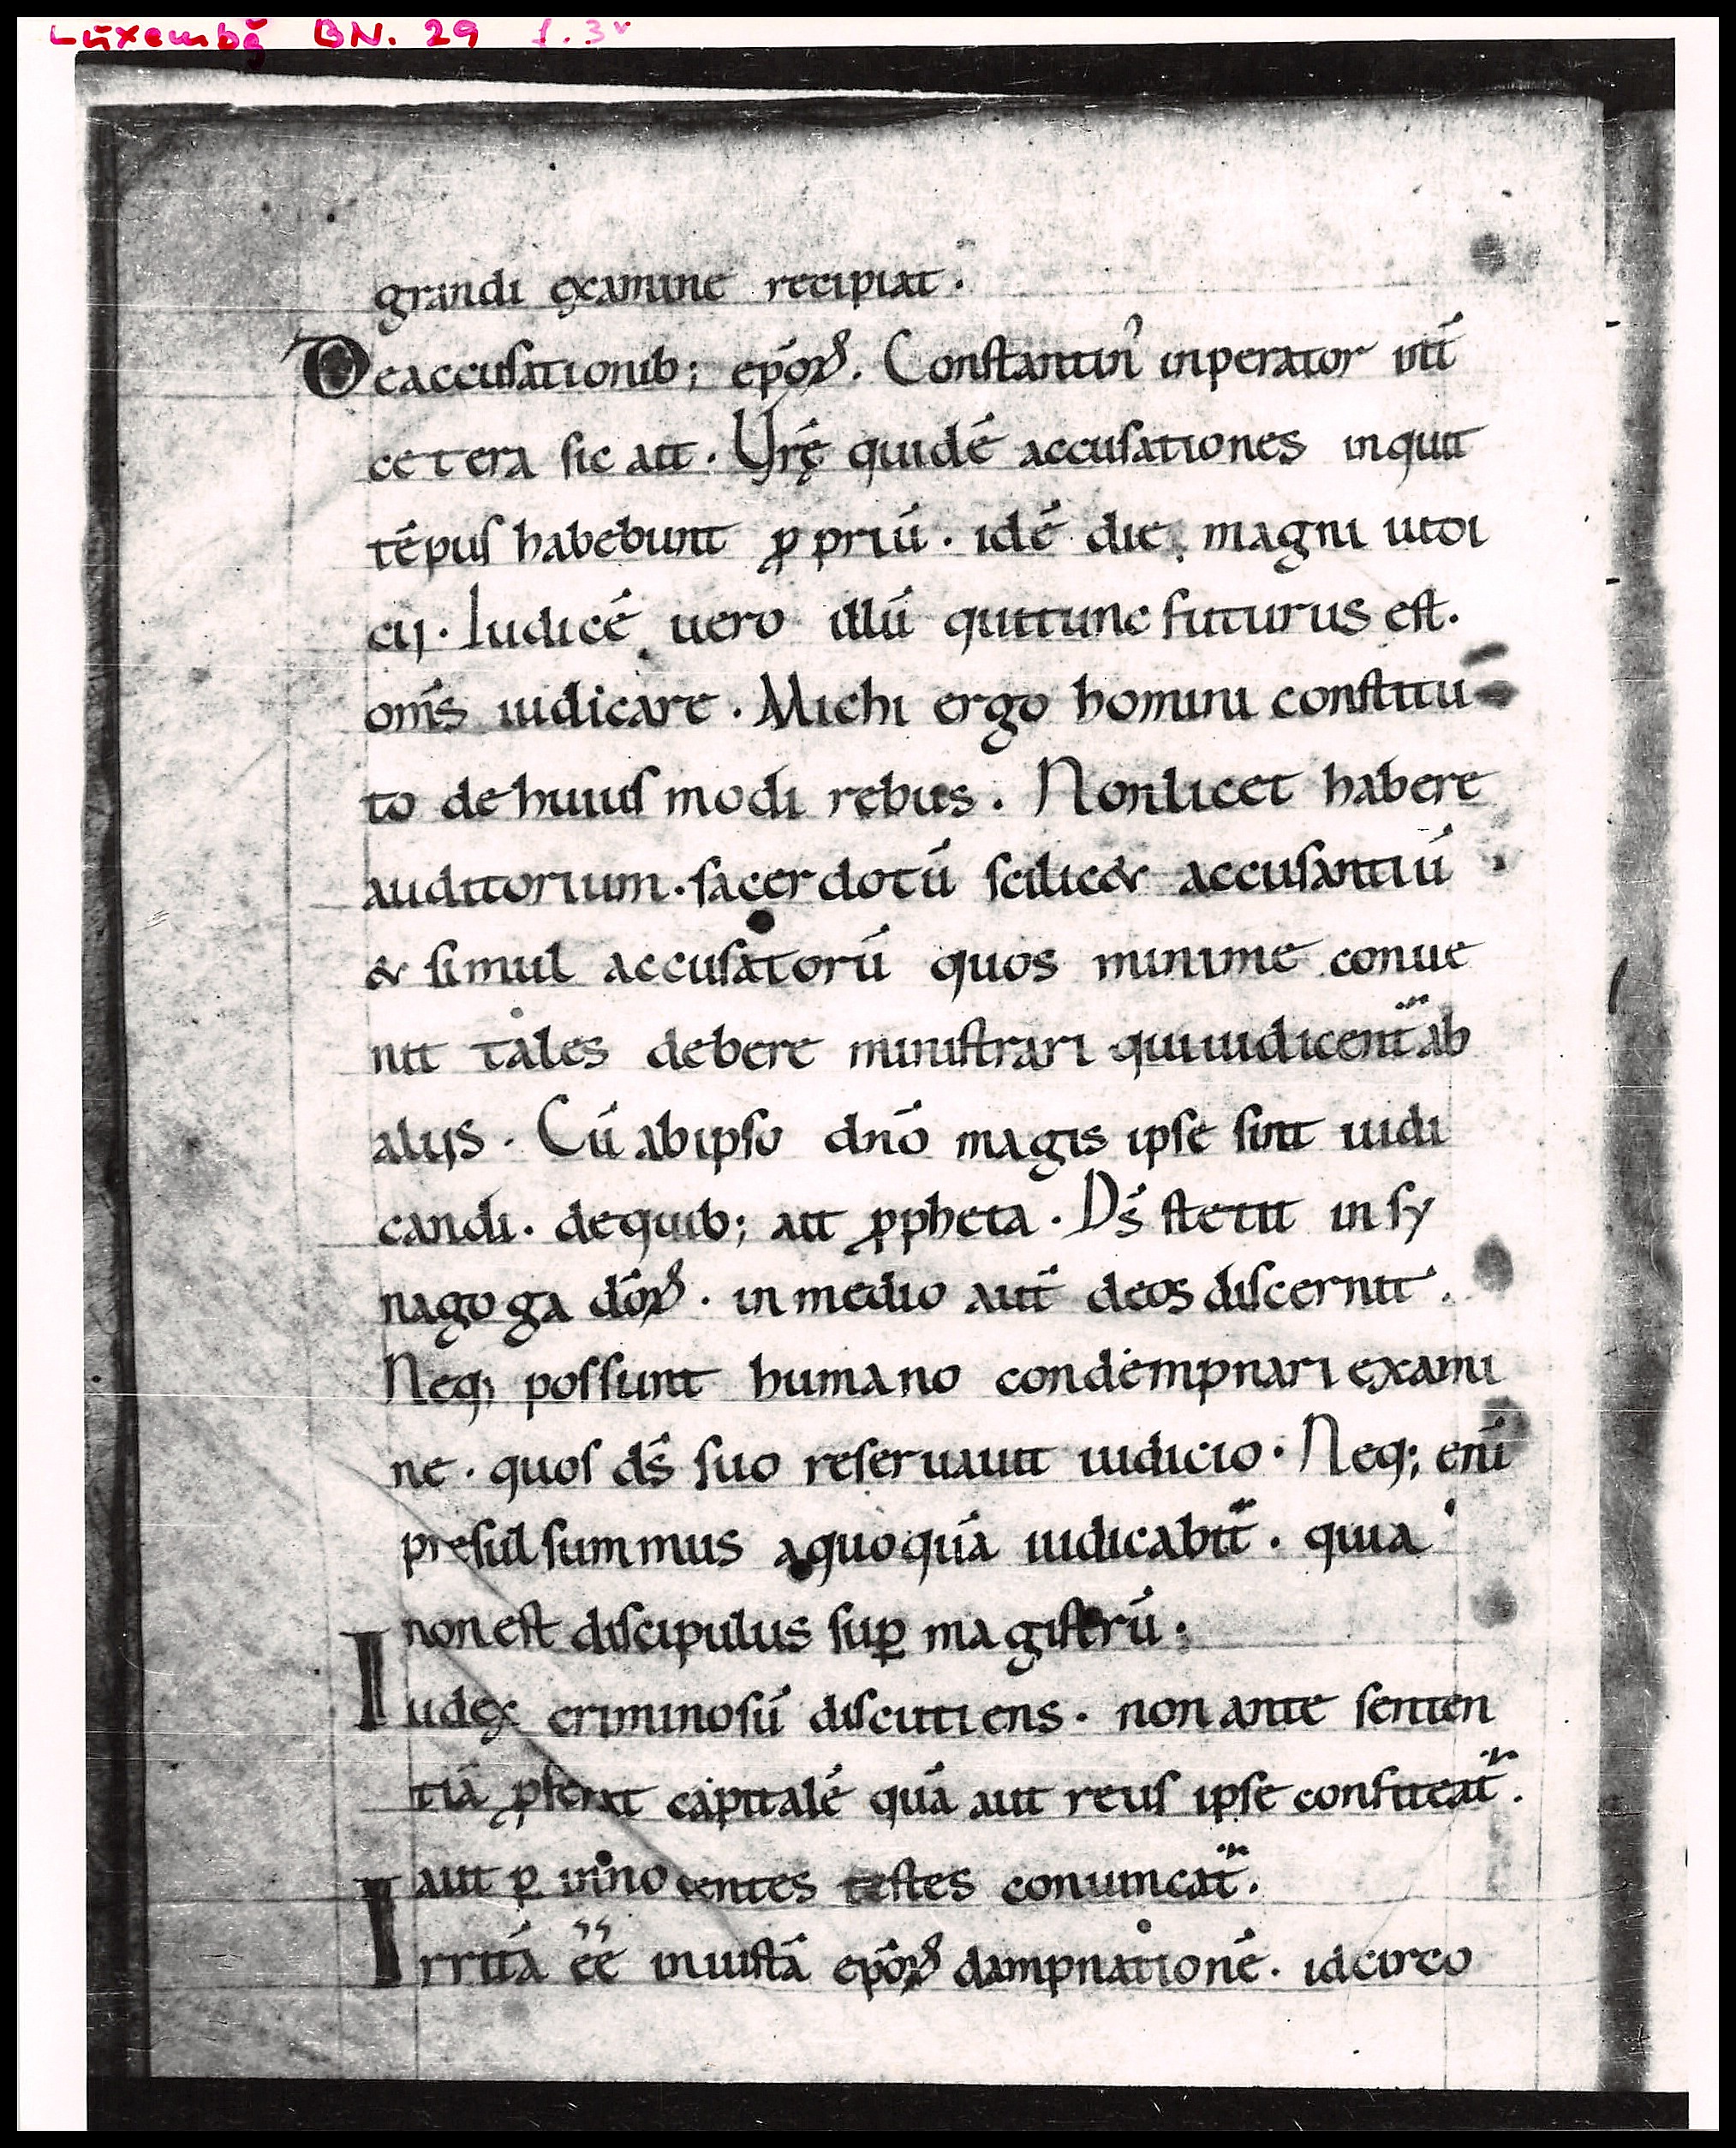 Luxembg BN. 29 f. 3v
grandi examine recipiat.
Deaccusationib; ep̄oꝝ. Constantin᾽ inperator int̄
cetera sic ait. Vr̄ę quidē accusationes inquit
tēpus habebunt ꝓpriū. idē die magni iudi
cij. Iudicē uero illū quitunc futurus est.
om̄s iudicare. Michi ergo homini constitu
to dehuiusmodi rebus. Nonlicet habere
auditorium. sacerdotū scilic& accusantiū
& simul accusatorū quos minime conue
nit tales debere ministrari quiiudicent̄ ab
alijs. Cū abipso dn̄o magis ipse sint iudi
candi. dequib; ait ꝓpheta. Ds̄ stetit in sy
nagoga dōꝝ. in medio aut̄ deos discernit.
Neq; possunt humano condempnari exami
ne. quos ds̄ suo reseruauit iudicio. Neq; enī
presul summus aquoquā iudicabit̄. quia
nonest discipulus suꝑ magistrū.
Iudex criminosū discutiens. non ante senten
tiā ꝓferat capitalē quā aut reus ipse confiteat̄.
aut ꝑ innocentes testes conuincat̄.
Irritā ēē iniustā ep̄oꝝ dampnationē. idcirco